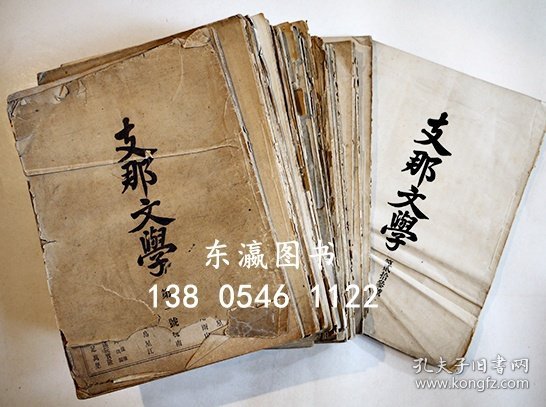 支那文學
號
支那文學
东瀛图书
138 0546 1122
孔夫子旧书网
www.kongfz.com